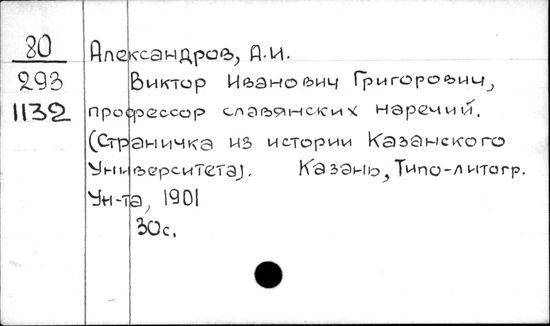 80
293
1132
Александров, А.И.
Виктор Иванович Григорович,
профессор славянских наречий.
(Страничка из истории Казанского
Университета).   Казань, Типо-литогр.
Ун-та, 1901
30с.